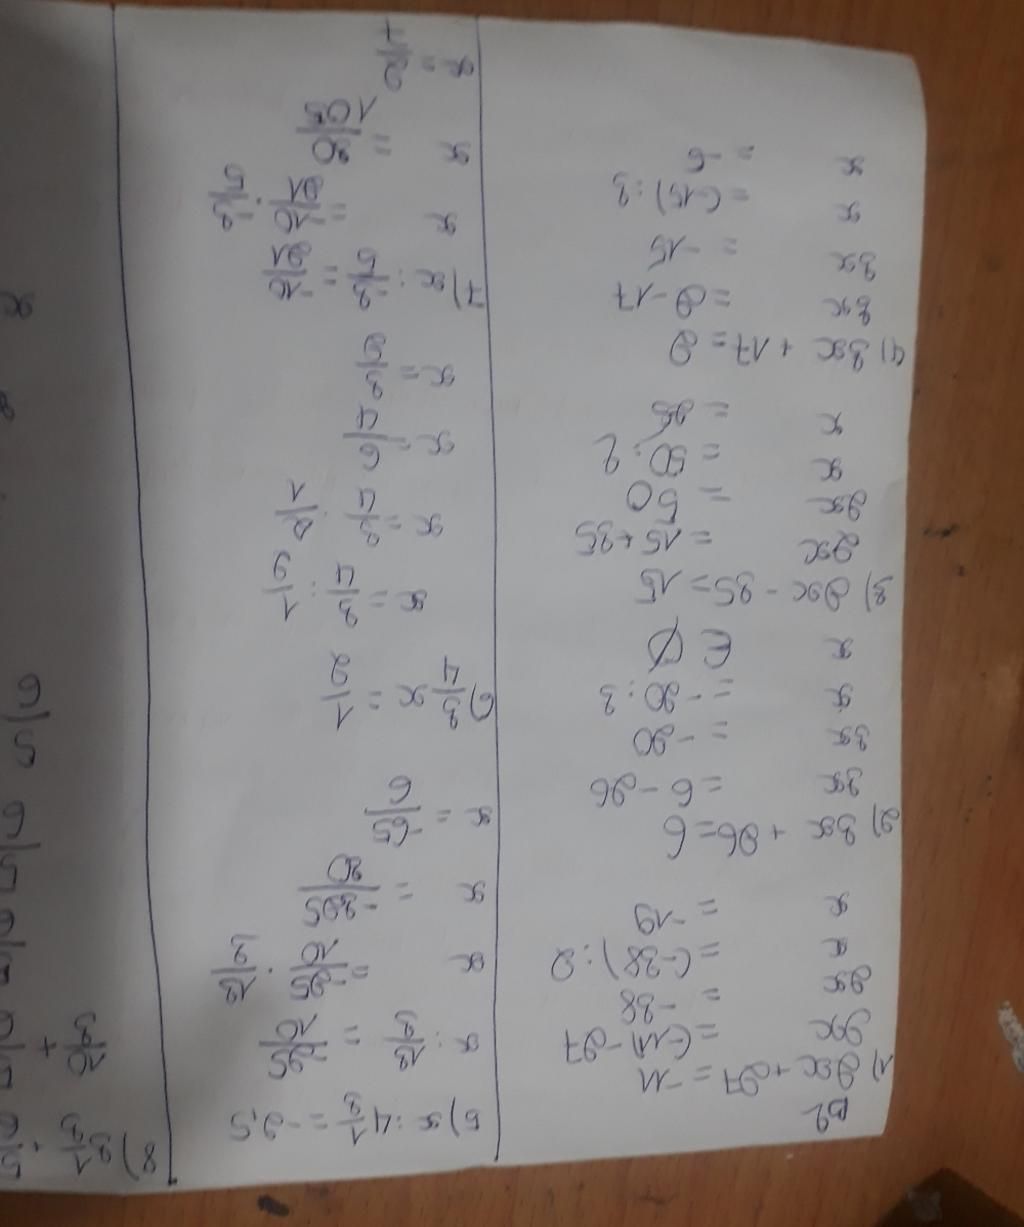 B2
1) 2x + 27 = -11
2x = (-11) - 27
2x = -38
x = (-38) : 2
x = -19
2) 3x + 26 = 6
3x = 6 - 26
3x = -20
x = -20 : 3
x ∈ Ø
3) 2x - 35 = 15
2x = 15 + 35
2x = 50
x = 50 : 2
x = 25
4) 3x + 17 = 2
3x = 2 - 17
3x = -15
x = (-15) : 3
x = -5
5) x : 4 1/3 = -2,5
x : 13/3 = -25/10
x = -25/10 · 13/3
x = -325/30
x = -65/6
6) 3/4 x = 1/2
x = 3/4 : 1/2
x = 3/4 · 2/1
x = 6/4
x = 3/2
7) x : 3/5 = 10/21
x = 10/21 · 3/5
x = 30/105
x = 2/7
8)